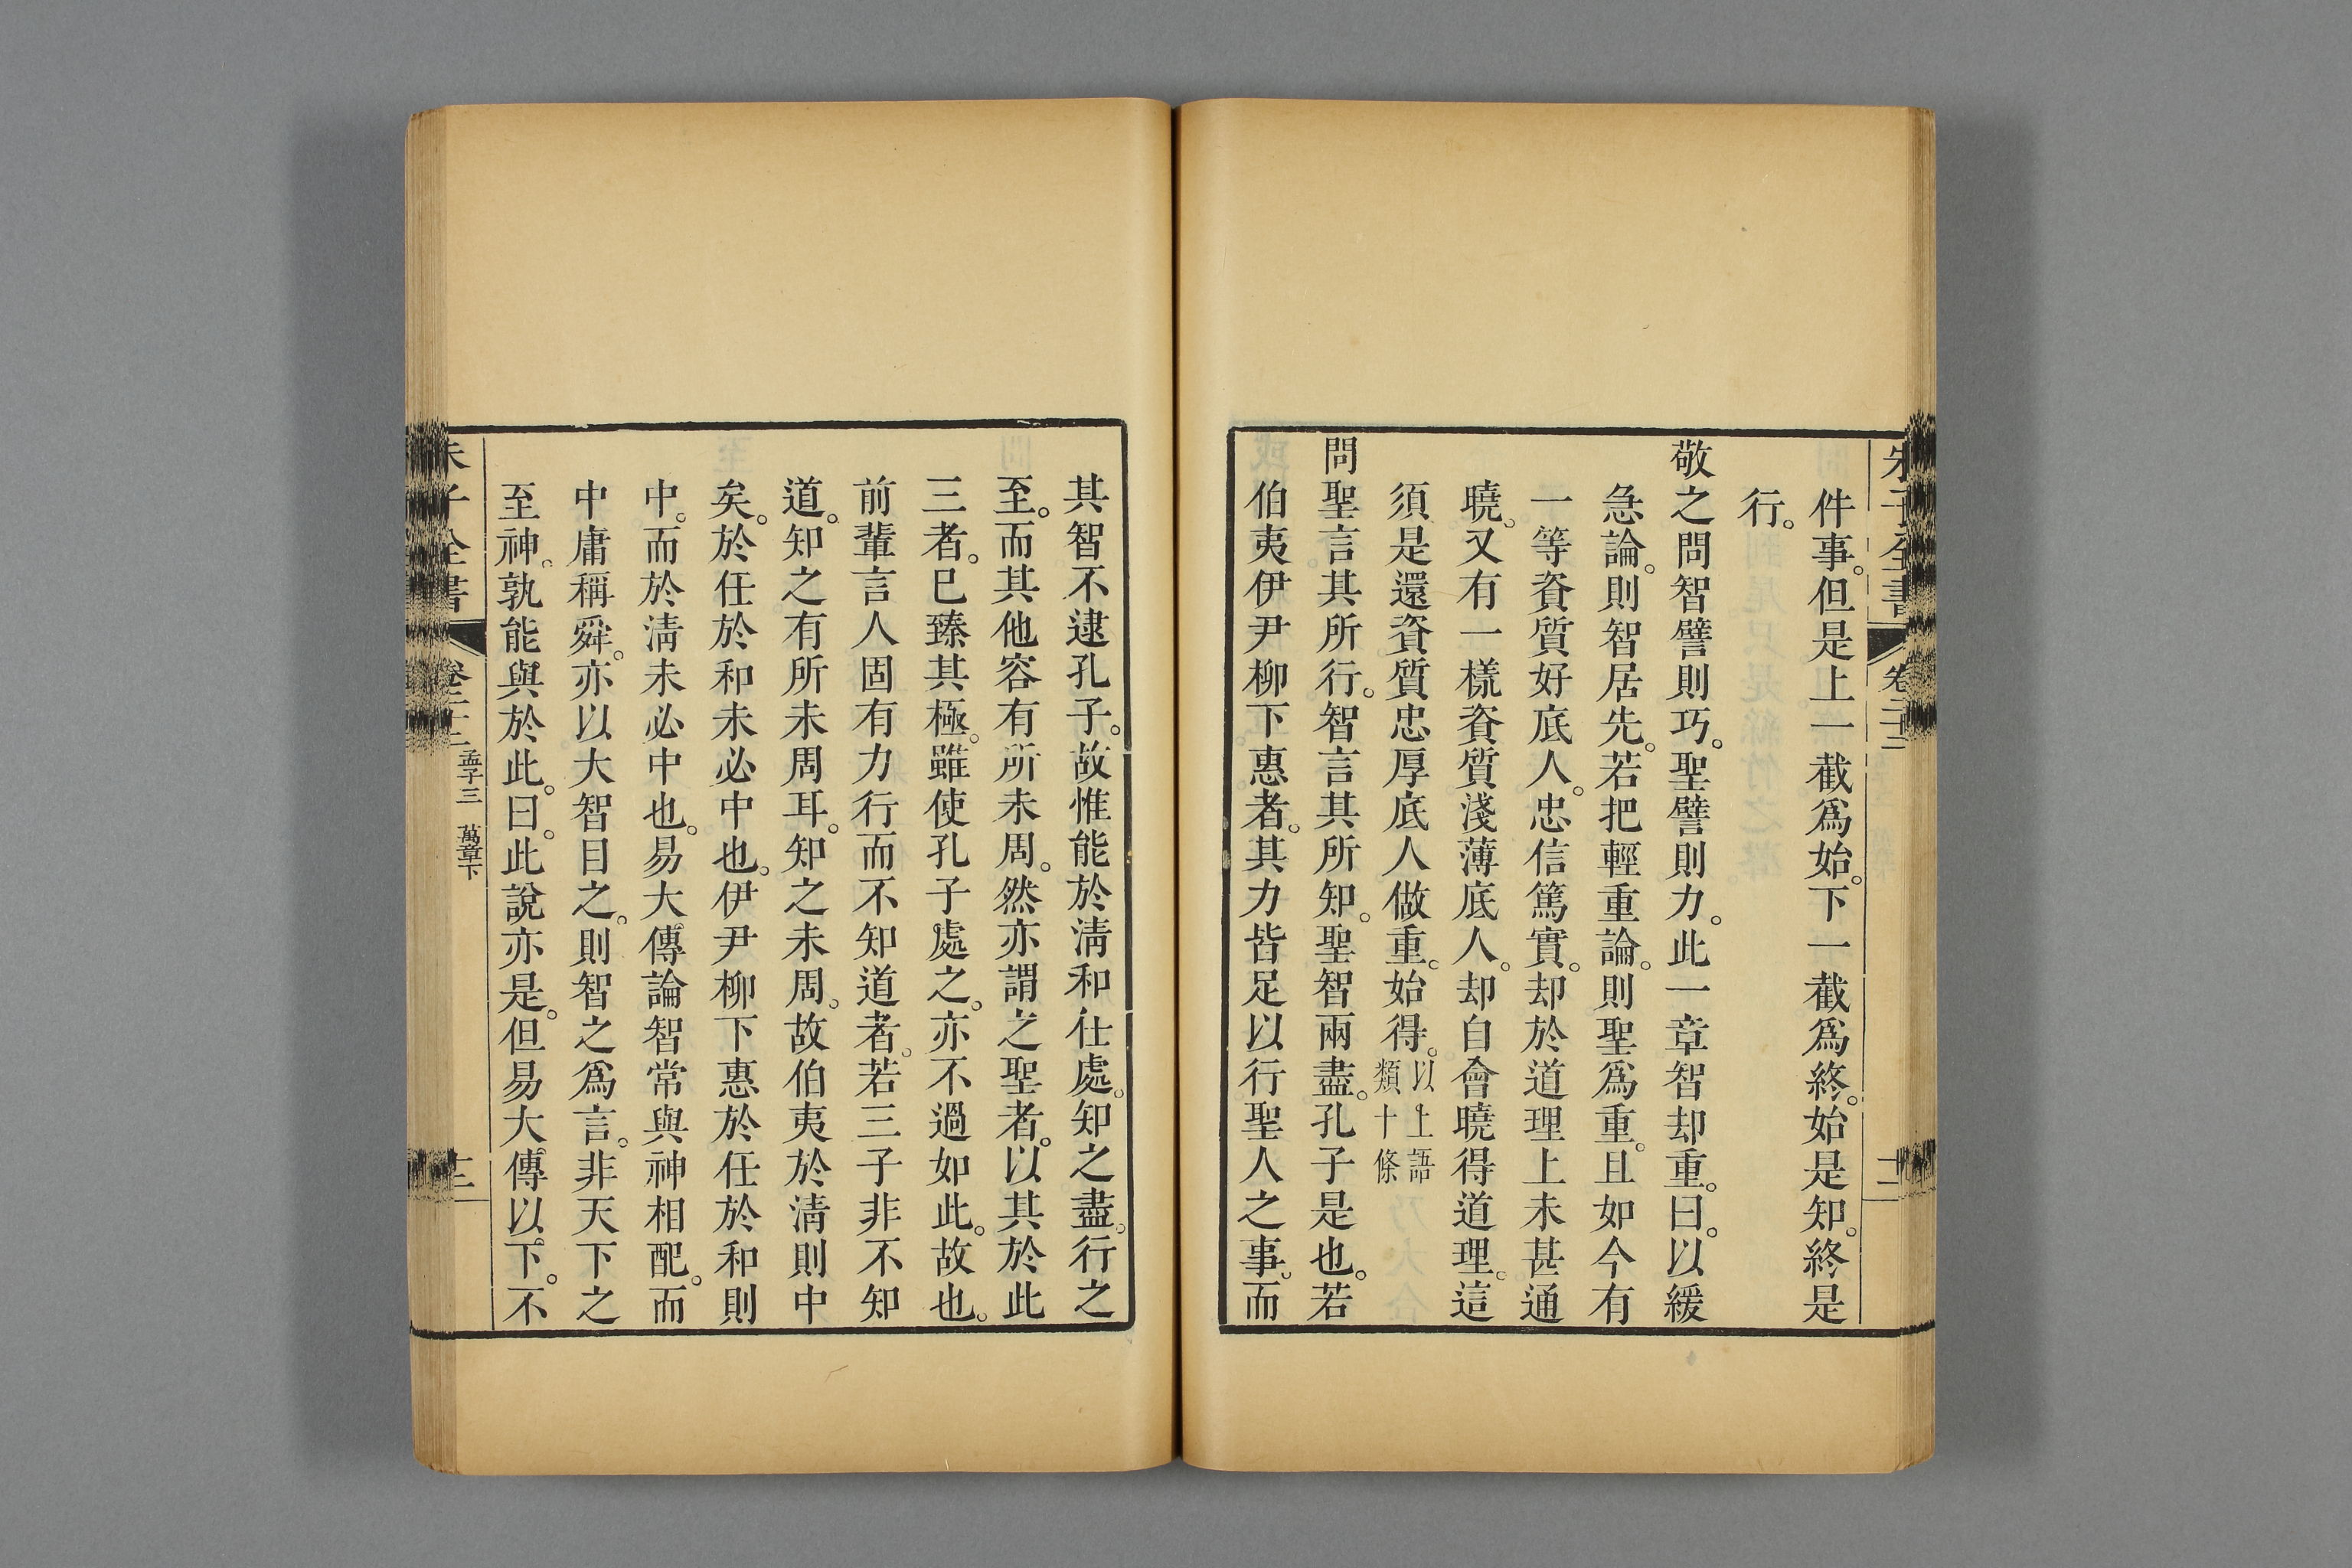 朱子全書 卷二十二 十二
件事。但是上一截爲始。下一截爲終。始是知。終是
行。
敬之問智譬則巧。聖譬則力。此一章智却重。曰。以緩
急論。則智居先。若把輕重論。則聖爲重。且如今有
一等資質好底人。忠信篤實。却於道理上未甚通
曉。又有一樣資質淺薄底人。却自會曉得道理。這
須是還資質忠厚底人做重。始得。以上語
類十條
問聖言其所行。智言其所知。聖智兩盡。孔子是也。若
伯夷伊尹柳下惠者。其力皆足以行聖人之事。而
其智不逮孔子。故惟能於淸和任處。知之盡。行之
至。而其他容有所未周。然亦謂之聖者。以其於此
三者。已臻其極。雖使孔子處之。亦不過如此。故也。
前輩言人固有力行而不知道者。若三子非不知
道。知之有所未周耳。知之未周。故伯夷於淸則中
矣。於任於和未必中也。伊尹柳下惠於任於和則
中。而於淸未必中也。易大傳論智常與神相配。而
中庸稱舜。亦以大智目之。則智之爲言。非天下之
至神。孰能與於此。曰。此說亦是。但易大傳以下。不
朱子全書 卷二十二 孟子三 萬章下 十三